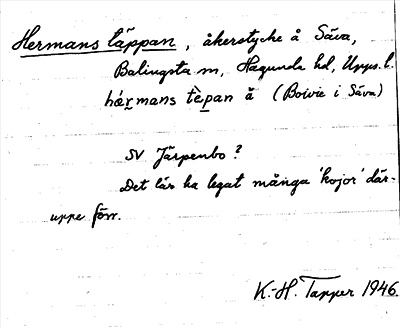 Hermans täppan, åkerstycke å Säva,
Balingsta sn, Hagunda hd, Upps. l.
hä́r̥mans tè̤pan å (Boivie i Säva)
SV Järpenbo?
Det lär ha legat många 'kojor' där-
uppe förr.
K.-H. Tapper 1946.